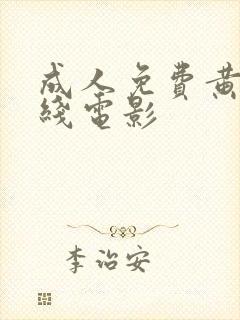 成人免費黄
綫電影
李治安